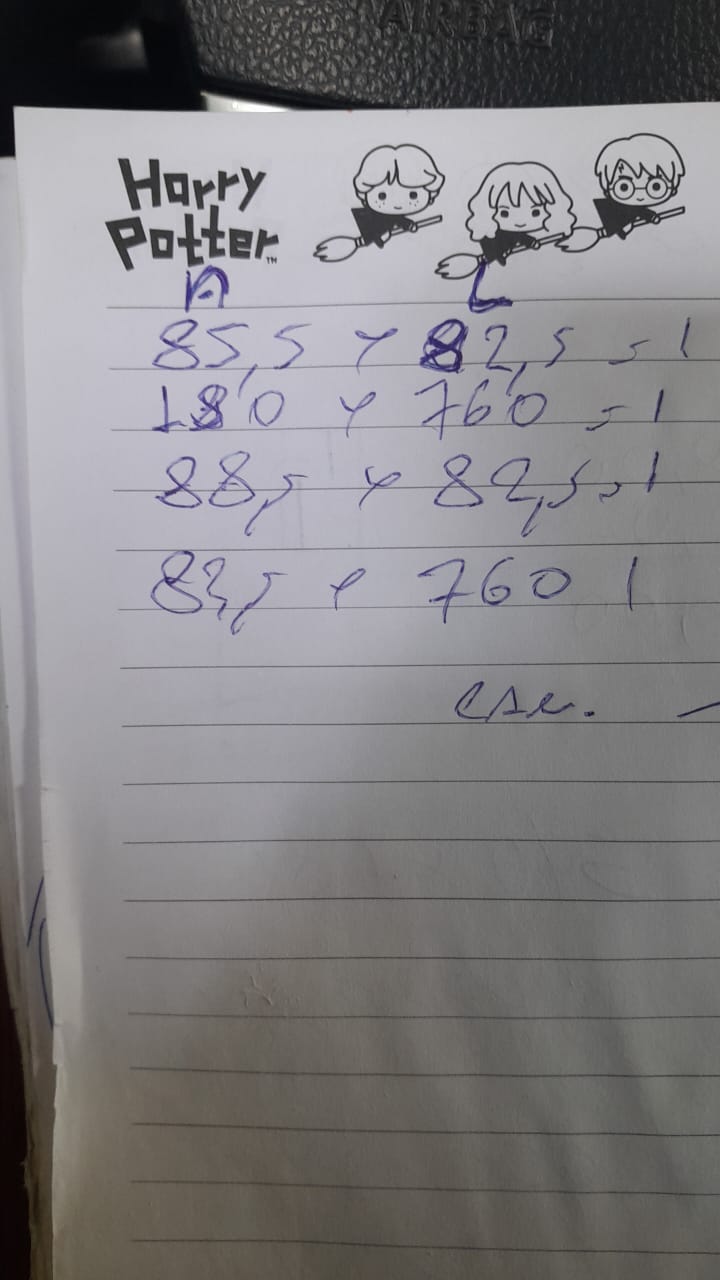 AIRBAG
Harry
Potter™
A L
85,5 x 82,5 = 1
180 x 760 = 1
88,5 x 82,5 = 1
83,5 x 760 1